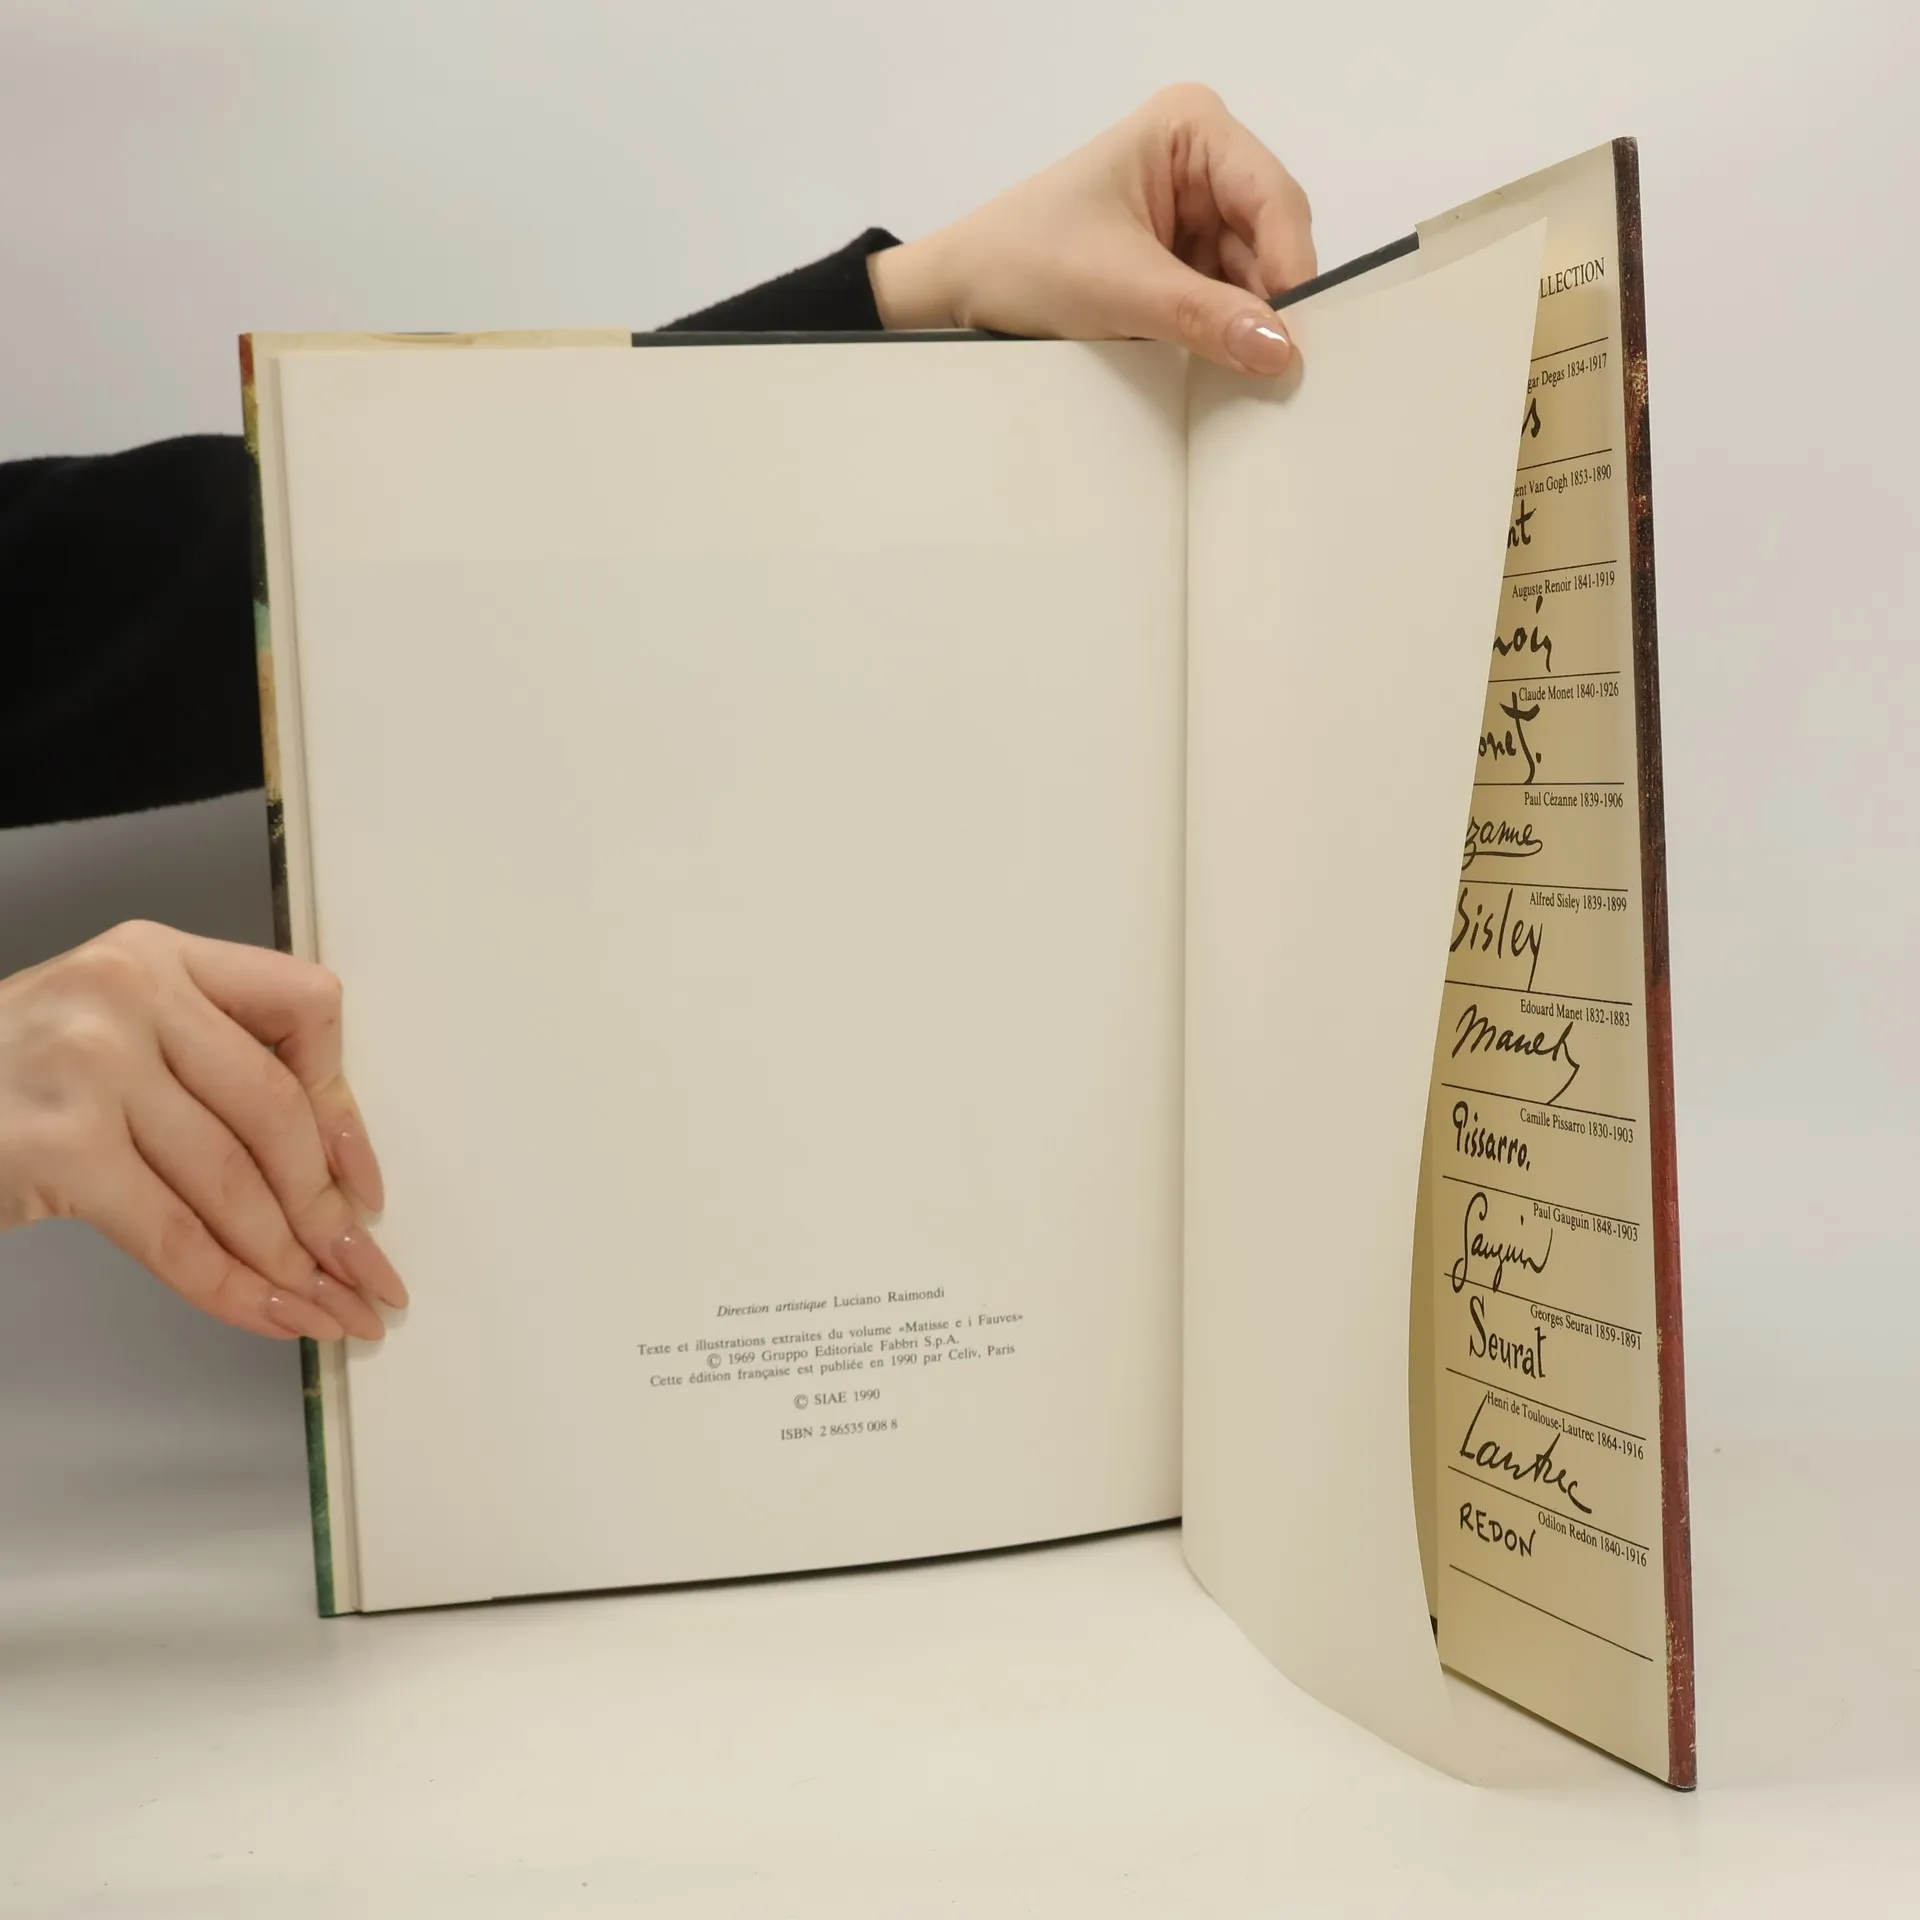 Direction artistique Luciano Raimondi
Texte et illustrations extraites du volume «Matisse e i Fauves»
© 1969 Gruppo Editoriale Fabbri S.p.A.
Cette édition française est publiée en 1990 par Celiv, Paris
© SIAE 1990
ISBN 2 86535 008 8
LLECTION
gar Degas 1834-1917
s
ent Van Gogh 1853-1890
nt
Auguste Renoir 1841-1919
noir
Claude Monet 1840-1926
onet.
Paul Cézanne 1839-1906
zanne
Alfred Sisley 1839-1899
Sisley
Edouard Manet 1832-1883
Manet
Camille Pissarro 1830-1903
Pissarro.
Paul Gauguin 1848-1903
Gauguin
Georges Seurat 1859-1891
Seurat
Henri de Toulouse-Lautrec 1864-1916
Lautrec
Odilon Redon 1840-1916
REDON